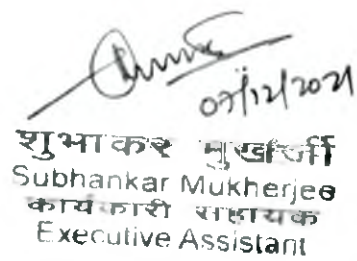 07/12/2021
शुभाकर मुखर्जी
Subhankar Mukherjee
कार्यकारी सहायक
Executive Assistant